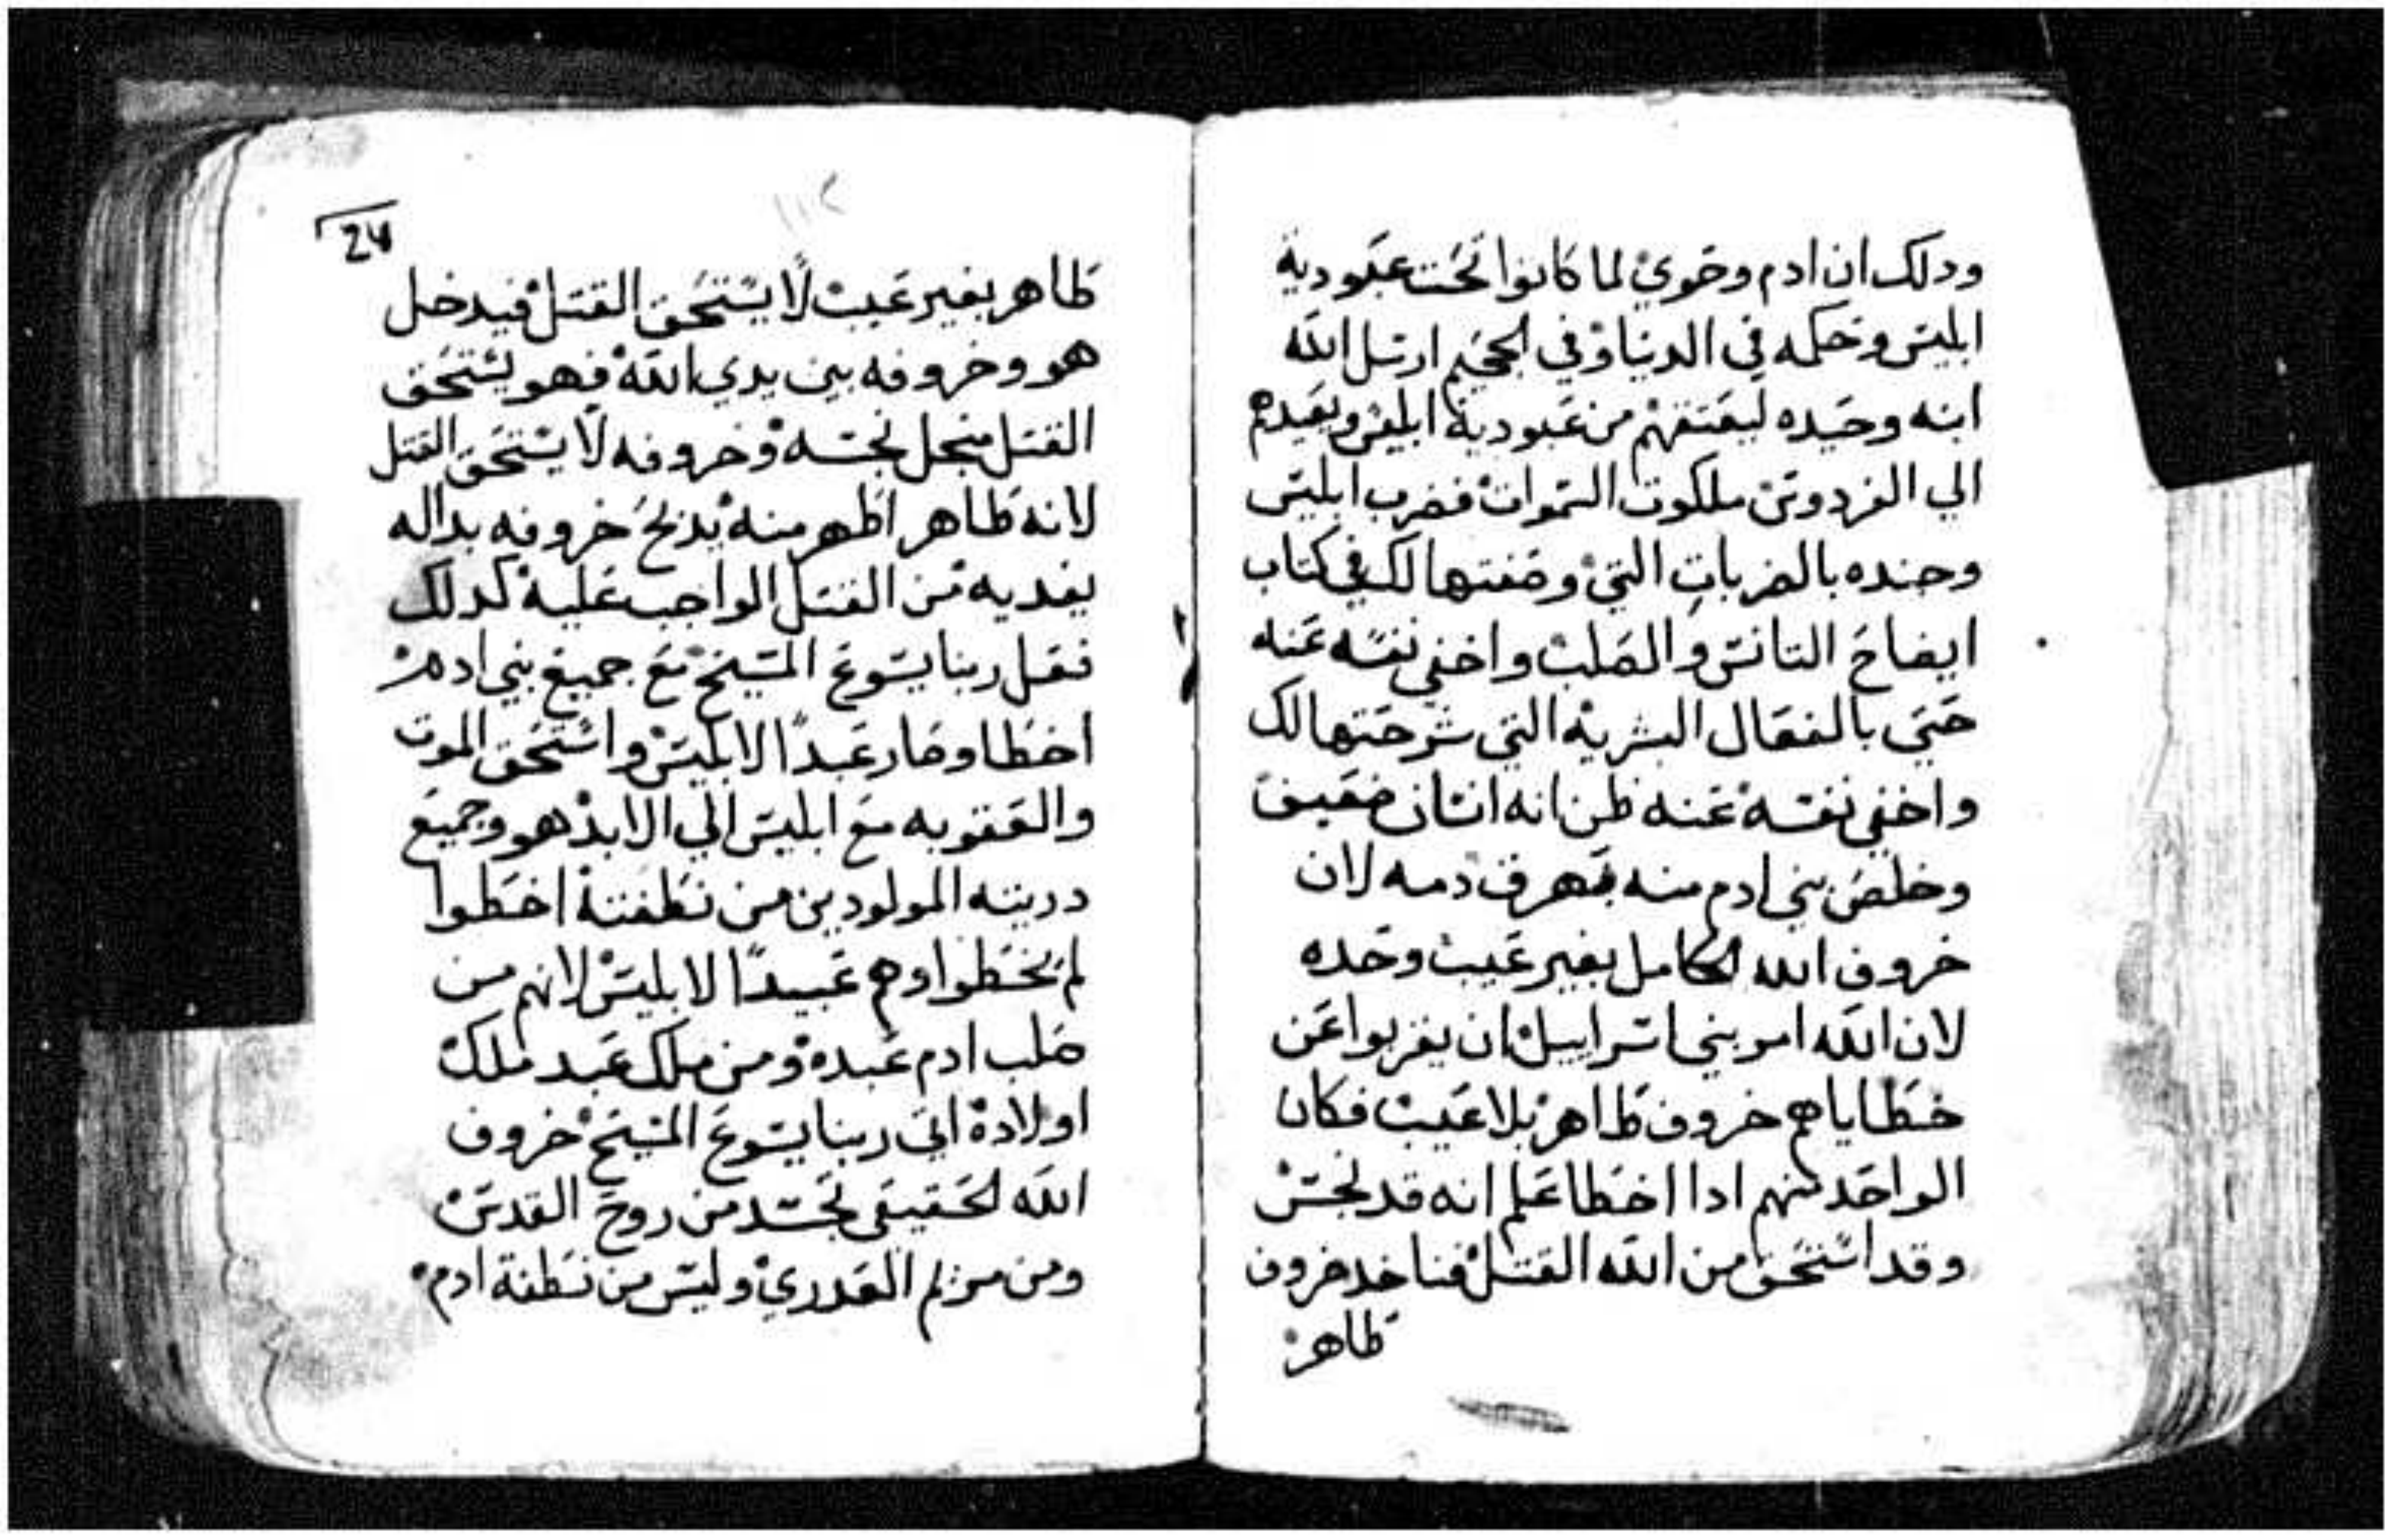 ودلك ان ادم وحوي لما كانوا تحت عبودية
ابليس وحكمه في الدنيا وفي الجحيم ارسل الله
ابنه وحيده ليعتقهم من عبودية ابليس ويعيدهم
الي الفردوس ملكوت السموات فضرب ابليس
وجنده بالضربات التي وصفتها لك في كتاب
ايضاح التانس والصلب واخفي نفسه عنه
حتي بالفعال البشريه التي شرحتها لك
واخفي نفسه عنه ظن انه انسان ضعيف
وخلص بني ادم منه بهرق دمه لان
خروف الله الكامل بغير عيب وحده
لان الله امر بني اسراييل ان يقربوا عن
خطاياهم خروف طاهر بلا عيب فكان
الواحد منهم ادا اخطا علم انه قد نجس
وقد استحق من الله القتل فياخد خروف
طاهر
24
طاهر بغير عيب لا يستحق القتل فيدخل
هو وخروفه بين يدي الله فهو يستحق
القتل منجل نجسه وخروفه لا يستحق القتل
لانه طاهر اطهر منه يدبح خروفه بداله
يفديه من القتل الواجب عليه كدلك
فعل ربنا يسوع المسيح مع جميع بني ادم
اخطا وصار عبدا لابليس واستحق الموت
والعقوبه مع ابليس الي الابد هو وجميع
دريته المولودين من نطفته اخطوا
لم يخطوا وهم عبيدا لابليس لانهم من
صلب ادم عبده ومن ملك عبد ملك
اولاده اتي ربنا يسوع المسيح خروف
الله الحقيقي تجسد من روح القدس
ومن مريم العدري وليس من نطفة ادم